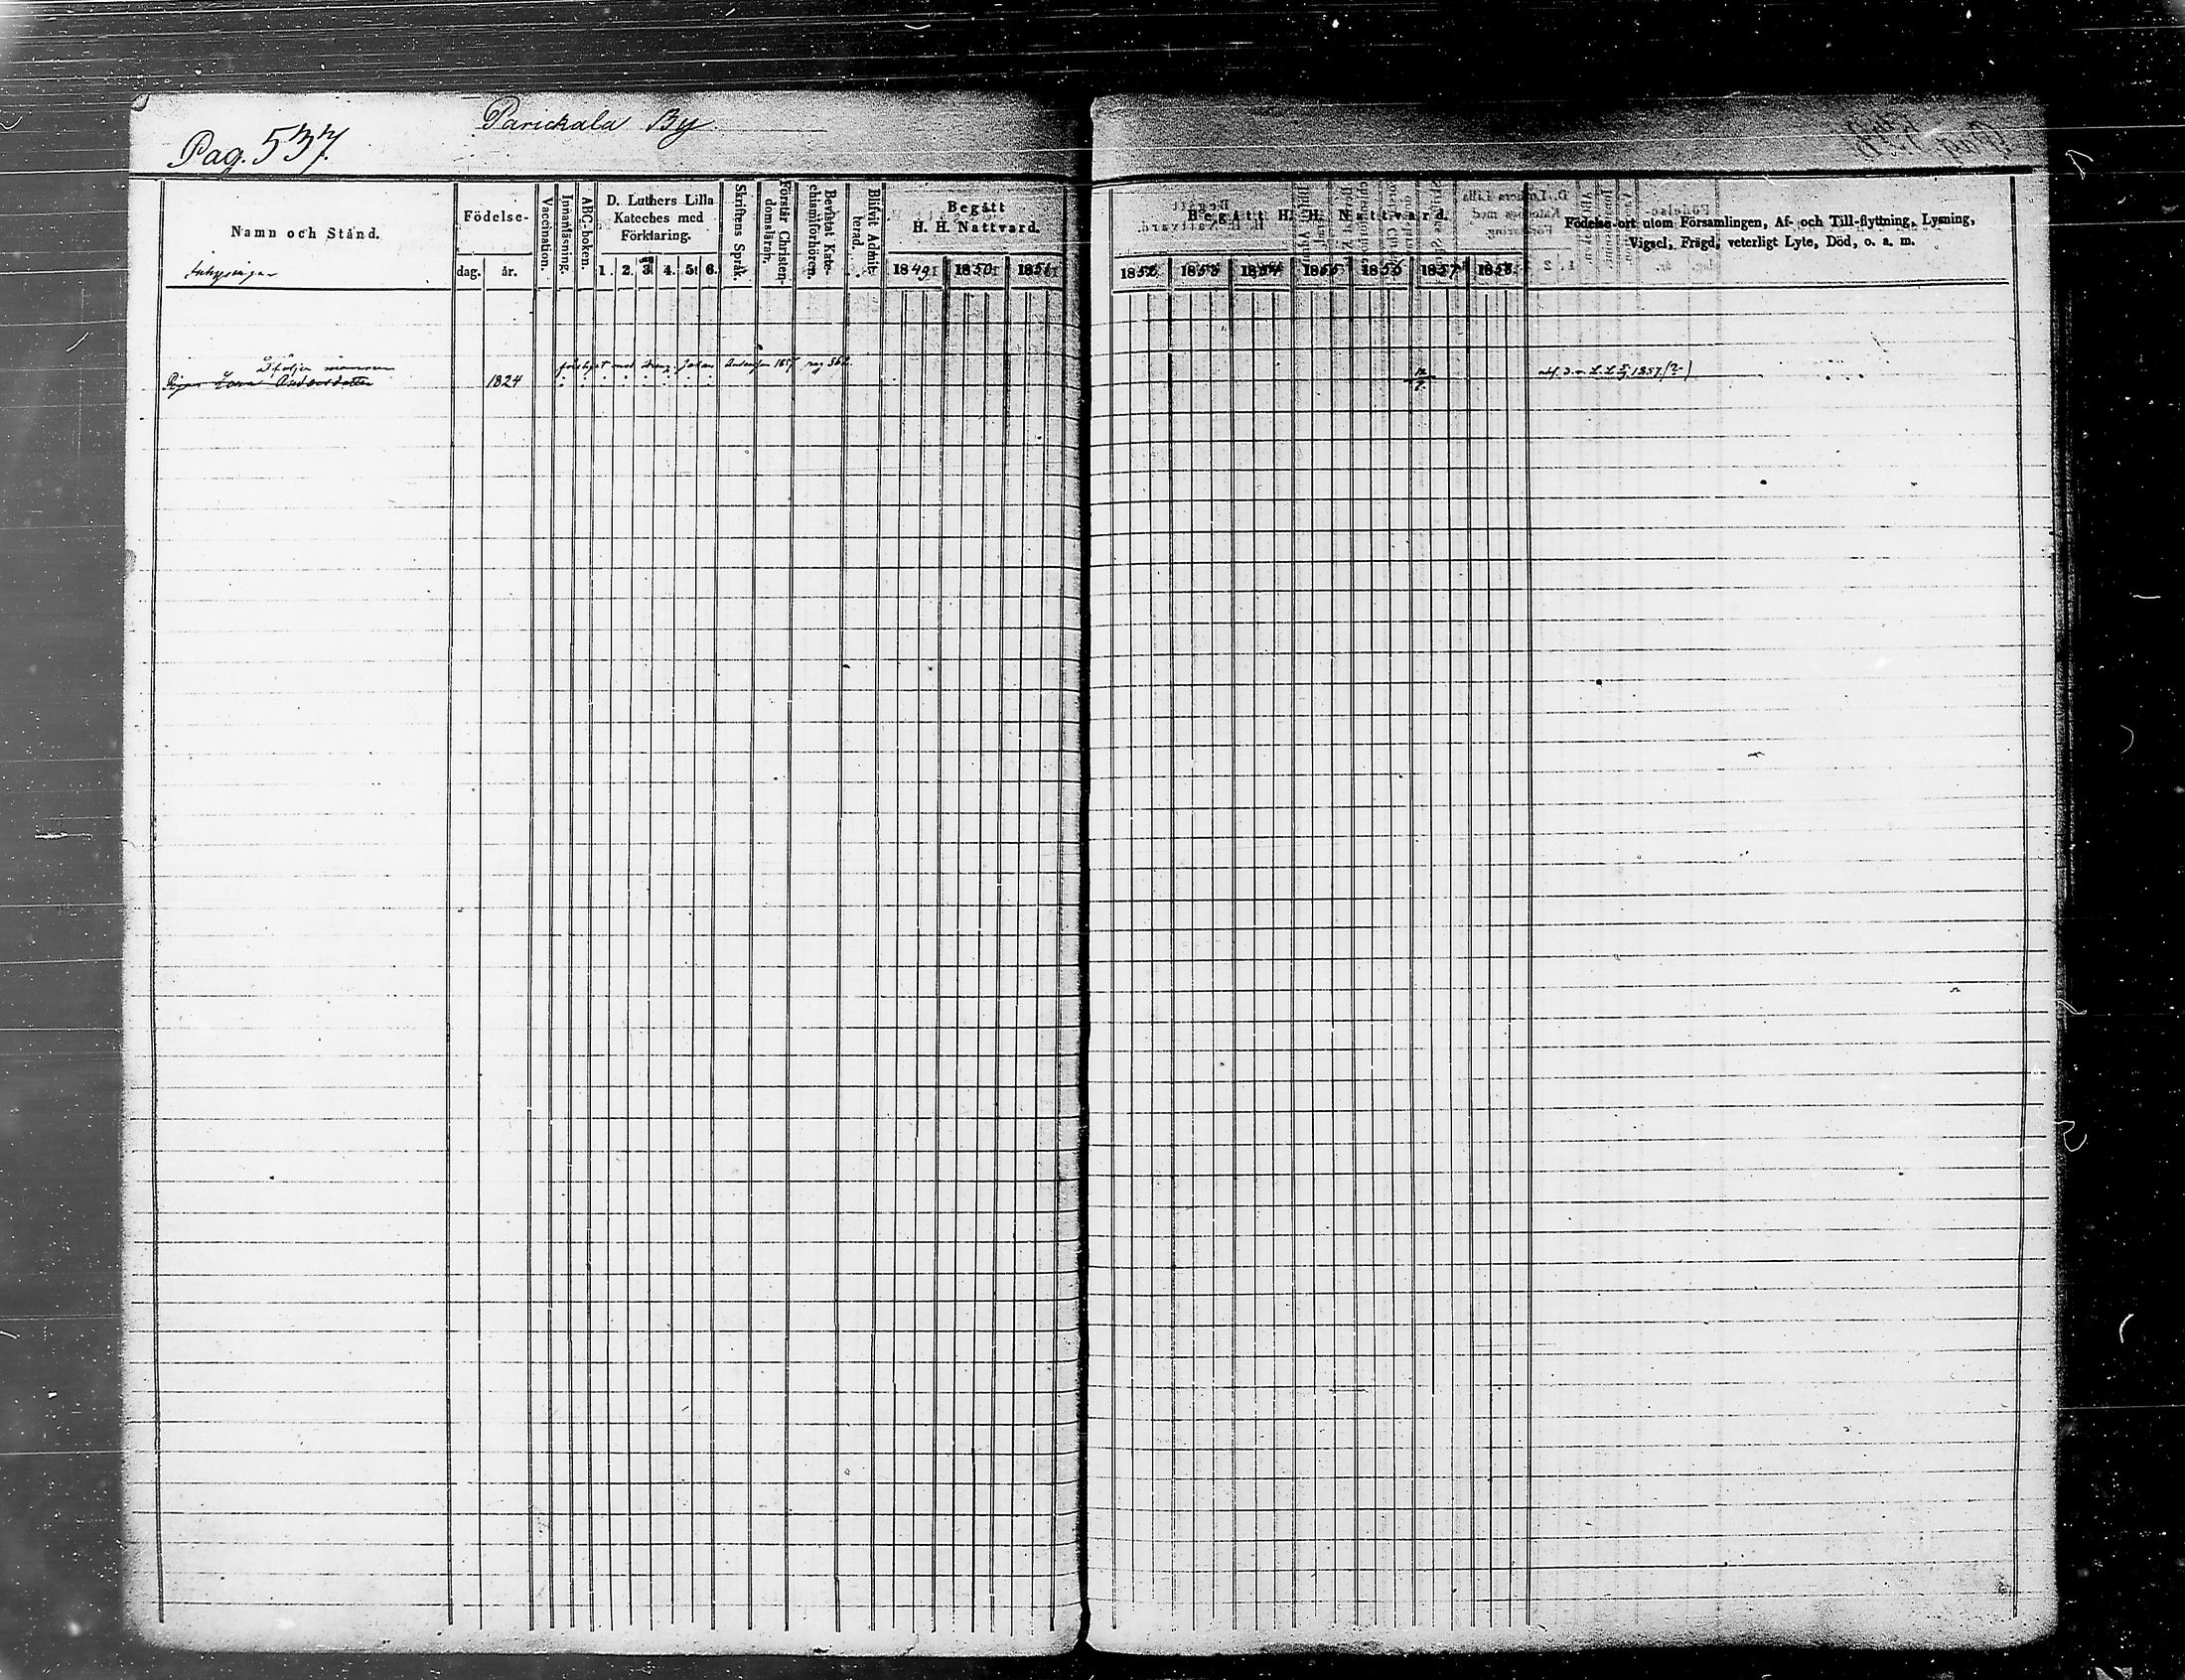 Pag. 537.
Parickala By
Namn och Stånd.
Inhysingar
Födelse-
dag. år.
Vaccination.
Innanläsning.
ABC-boken.
D. Luthers Lilla
Kateches med
Förklaring.
1. 2. 3. 4. 5. 6.
Skriftens Språk.
Förstår Christen-
domsläran.
Bevistat Kate-
chismiförhören.
Blifvit Admit-
terad.
Begått
H. H. Nattvard.
1849. 1850. 1851.
Begått H. H. Nattvard.
1852. 1853. 1854. 1855. 1856. 1857. 1858.
Födelse-ort utom Församlingen, Af- och Till-flyttning, Lysning,
Vigsel, Frägd, veterligt Lyte, Död, o. a. m.
åtföljer mannen
Pigan Anders dotter
1824
med dreng. Johan 1857 pag 562
1857